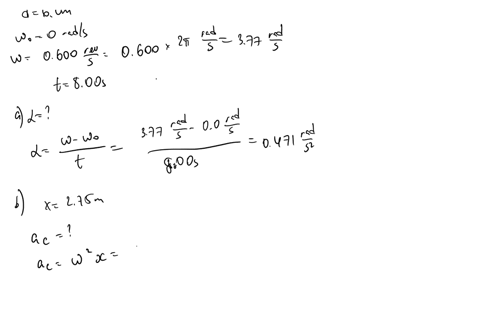 ω₀ = 0 rad/s
ω = 0.600 rev/s = 0.600 × 2π rad/s = 3.77 rad/s
t = 8.00s
a) α = ?
α = (ω - ω₀)/t = (3.77 rad/s - 0.0 rad/s)/8.00s = 0.471 rad/s²
b) x = 2.75m
a_c = ?
a_c = ω²x =